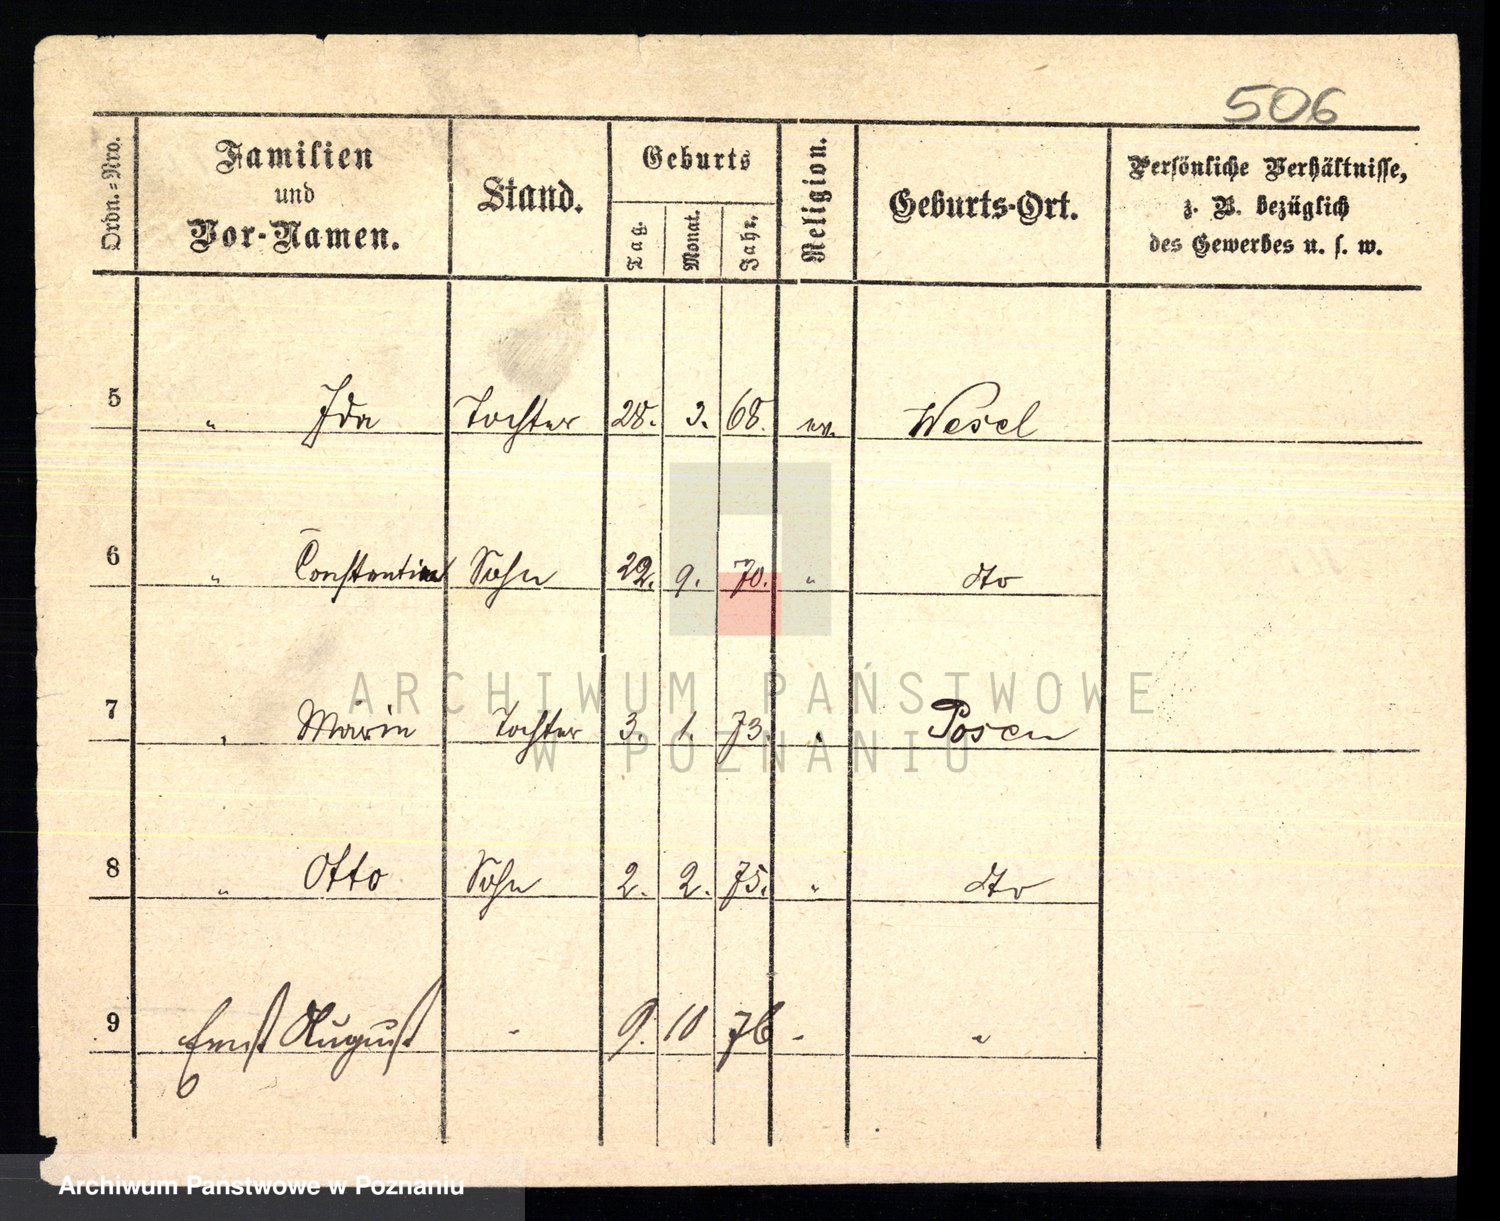 506
Ordn.=Nro.
Familien
und
Vor-Namen.
Stand.
Geburts
Tag.
Monat.
Jahr.
Religion.
Geburts-Ort.
Persönliche Verhältnisse,
z. B. bezüglich
des Gewerbes u. s. w.
5 " Ida Tochter 28. 3. 68. ev. Wesel
6 " Constantin Sohn 22. 9. 70. " dto
7 " Marie Tochter 3. 1. 73. " Posen
8 " Otto Sohn 2. 2. 75. " dto
9 Ernst August - 9. 10 76 - "
ARCHIWUM PAŃSTWOWE
W POZNANIU
Archiwum Państwowe w Poznaniu